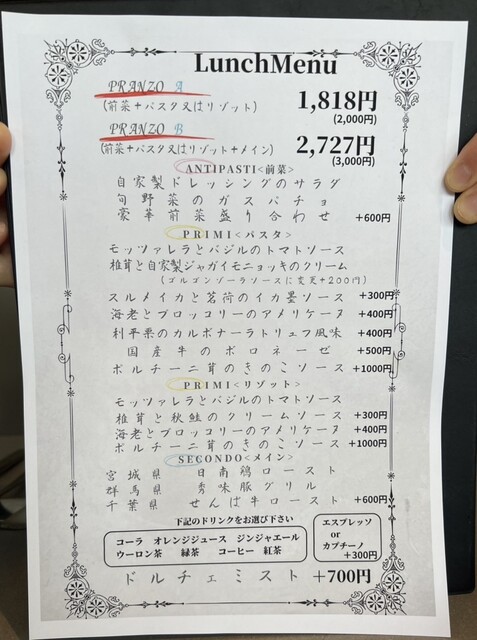 LunchMenu
PRANZO A
(前菜+パスタ又はリゾット)
1,818円
(2,000円)
PRANZO B
(前菜+パスタ又はリゾット+メイン)
2,727円
(3,000円)
ANTIPASTI<前菜>
自家製ドレッシングのサラダ
旬野菜のガスパチョ
豪華前菜盛り合わせ +600円
PRIMI<パスタ>
モッツァレラとバジルのトマトソース
椎茸と自家製ジャガイモニョッキのクリーム
(ゴルゴンゾーラソースに変更+200円)
スルメイカと茗荷のイカ墨ソース +300円
海老とブロッコリーのアメリケーヌ +400円
利平栗のカルボナーラトリュフ風味 +400円
国産牛のボロネーゼ +500円
ポルチーニ茸のきのこソース +1000円
PRIMI<リゾット>
モッツァレラとバジルのトマトソース
椎茸と秋鮭のクリームソース +300円
海老とブロッコリーのアメリケーヌ +400円
ポルチーニ茸のきのこソース +1000円
SECONDO<メイン>
宮城県 日南鶏ロースト
群馬県 秀味豚グリル
千葉県 せんば牛ロースト +600円
下記のドリンクをお選び下さい
コーラ オレンジジュース ジンジャエール
ウーロン茶 緑茶 コーヒー 紅茶
エスプレッソ
or
カプチーノ
+300円
ドルチェミスト +700円